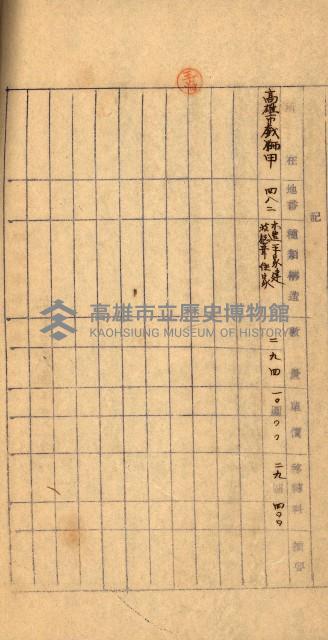 記
所在
地番
種類構造
數量
單價
移轉料
摘要
高雄市戲獅甲
四八二
木造平家建
住家
二九四
一〇〇〇
二九四〇〇
高雄市立歷史博物館
KAOHSIUNG MUSEUM OF HISTORY